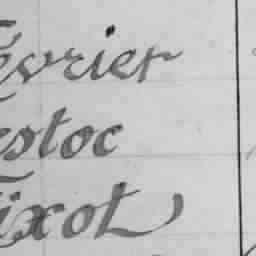 évrier
estoc
ixot